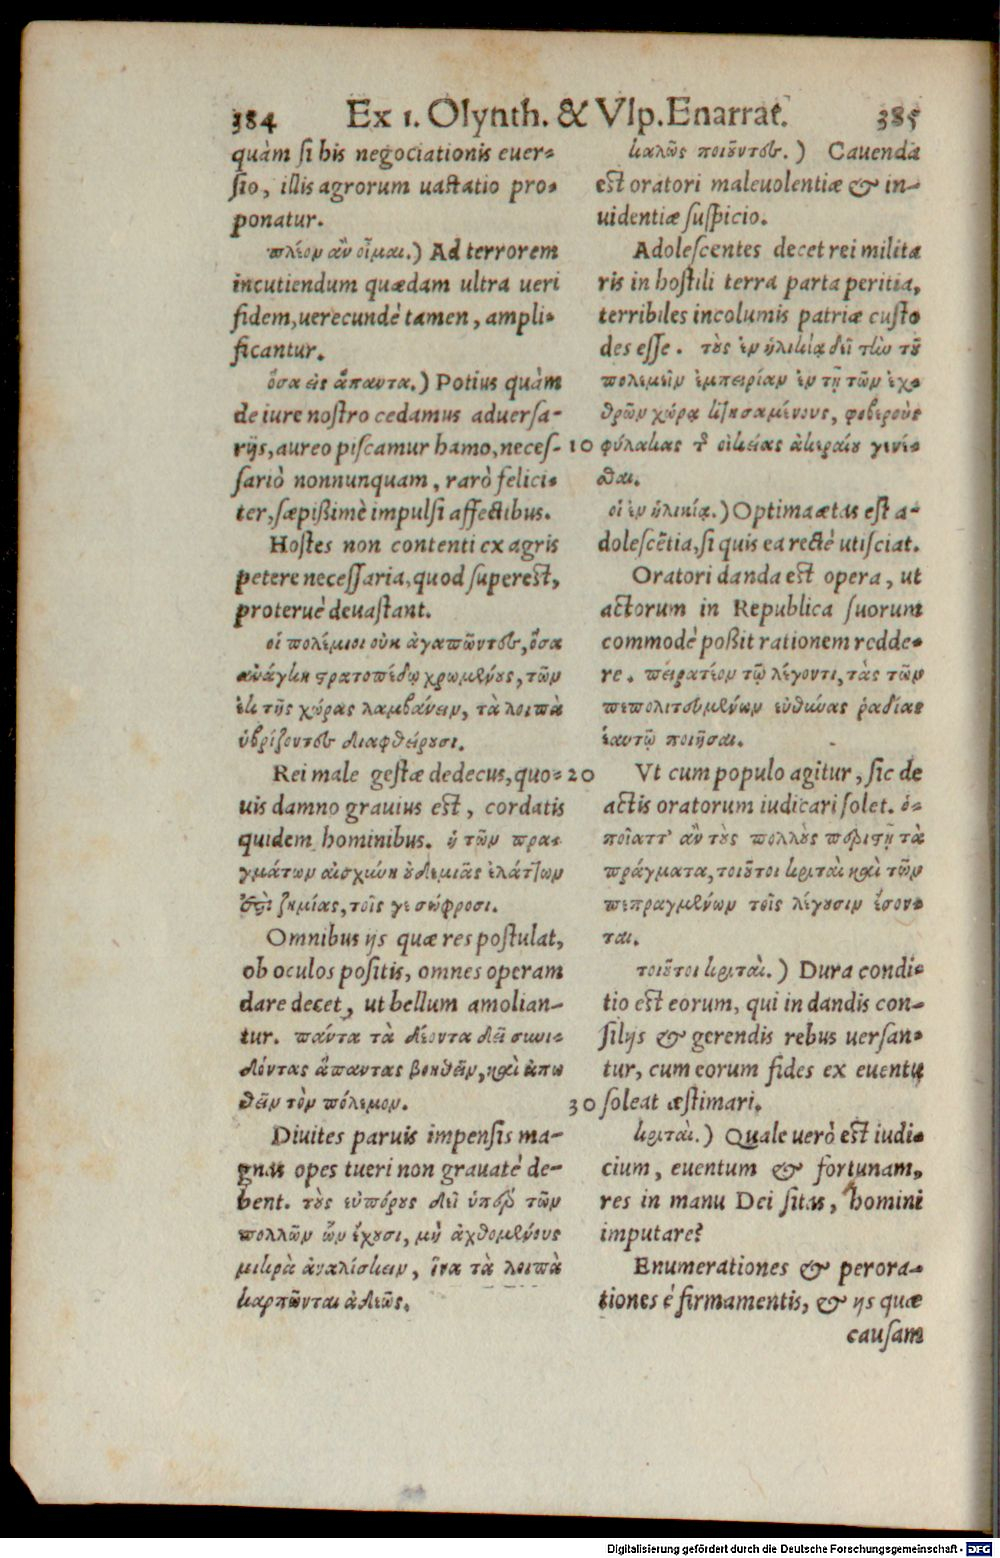 384 Ex 1. Olynth. & Vlp. Enarrat. 385
quàm si his negociationis euer-
sio, illis agrorum uastatio pro-
ponatur.
πλέον ἂν οἶμαι.) Ad terrorem
incutiendum quædam ultra ueri
fidem, uerecundè tamen, ampli-
ficantur.
ὅσα εἰς ἅπαντα.) Potius quàm
de iure nostro cedamus aduersa-
rijs, aureo piscamur hamo, neces-
sariò nonnunquam, rarò felici-
ter, sæpißimè impulsi affectibus.
Hostes non contenti ex agris
petere necessaria, quod superest,
proteruè deuastant.
οἱ πολέμιοι οὐκ ἀγαπῶντες, ὅσα
ἀνάγκη στρατοπέδῳ χρωμένους, τῶν
ἐκ τῆς χώρας λαμβάνειν, τὰ λοιπὰ
ὑβρίζοντες διαφθείρουσι.
Rei male gestæ dedecus, quo-
uis damno grauius est, cordatis
quidem hominibus. ἡ τῶν πρα-
γμάτων αἰσχύνη οὐδεμιᾶς ἐλάττων
ἐστὶ ζημίας, τοῖς γε σώφροσι.
Omnibus ijs quæ res postulat,
ob oculos positis, omnes operam
dare decet, ut bellum amolian-
tur. πάντα τὰ δέοντα δεῖ συνι-
δόντας ἅπαντας βοηθεῖν, καὶ ἀπω
θεῖν τὸν πόλεμον.
Diuites paruis impensis ma-
gnas opes tueri non grauatè de-
bent. τοὺς εὐπόρους δεῖ ὑπὲρ τῶν
πολλῶν ὧν ἔχουσι, μὴ ἀχθομένους
μικρὰ ἀναλίσκειν, ἵνα τὰ λοιπὰ
καρπῶνται ἀδεῶς.
10
20
30
καλῶς ποιοῦντες.) Cauenda
est oratori maleuolentiæ & in-
uidentiæ suspicio.
Adolescentes decet rei milita
ris in hostili terra parta peritia,
terribiles incolumis patriæ custo
des esse. τοὺς ἐν ἡλικίᾳ δεῖ τὴν τοῦ
πολεμεῖν ἐμπειρίαν ἐν τῇ τῶν ἐχ-
θρῶν χώρᾳ κτησαμένους, φοβεροὺς
φύλακας τῆς οἰκείας ἀκεραίου γενέ-
σθαι.
οἱ ἐν ἡλικίᾳ.) Optima ætas est a-
dolescẽtia, si quis ea rectè uti sciat.
Oratori danda est opera, ut
actorum in Republica suorum
commodè poßit rationem redde-
re. πειρατέον τῷ λέγοντι, τὰς τῶν
πεπολιτευμένων εὐθύνας ῥᾳδίας
ἑαυτῷ ποιῆσαι.
Vt cum populo agitur, sic de
actis oratorum iudicari solet. ὁ-
ποῖα ττ' ἂν τοὺς πολλοὺς περιστῇ τὰ
πράγματα, τοιοῦτοι κριταὶ καὶ τῶν
πεπραγμένων τοῖς λέγουσιν ἔσον-
ται.
τοιοῦτοι κριταὶ.) Dura condi-
tio est eorum, qui in dandis con-
silijs & gerendis rebus uersan-
tur, cum eorum fides ex euentu
soleat æstimari.
κριταὶ.) Quale uerò est iudi-
cium, euentum & fortunam,
res in manu Dei sitas, homini
imputare?
Enumerationes & perora-
tiones è firmamentis, & ijs quæ
causam
Digitalisierung gefördert durch die Deutsche Forschungsgemeinschaft - DFG